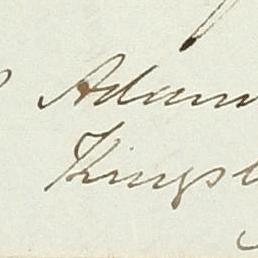 Adam
Kings